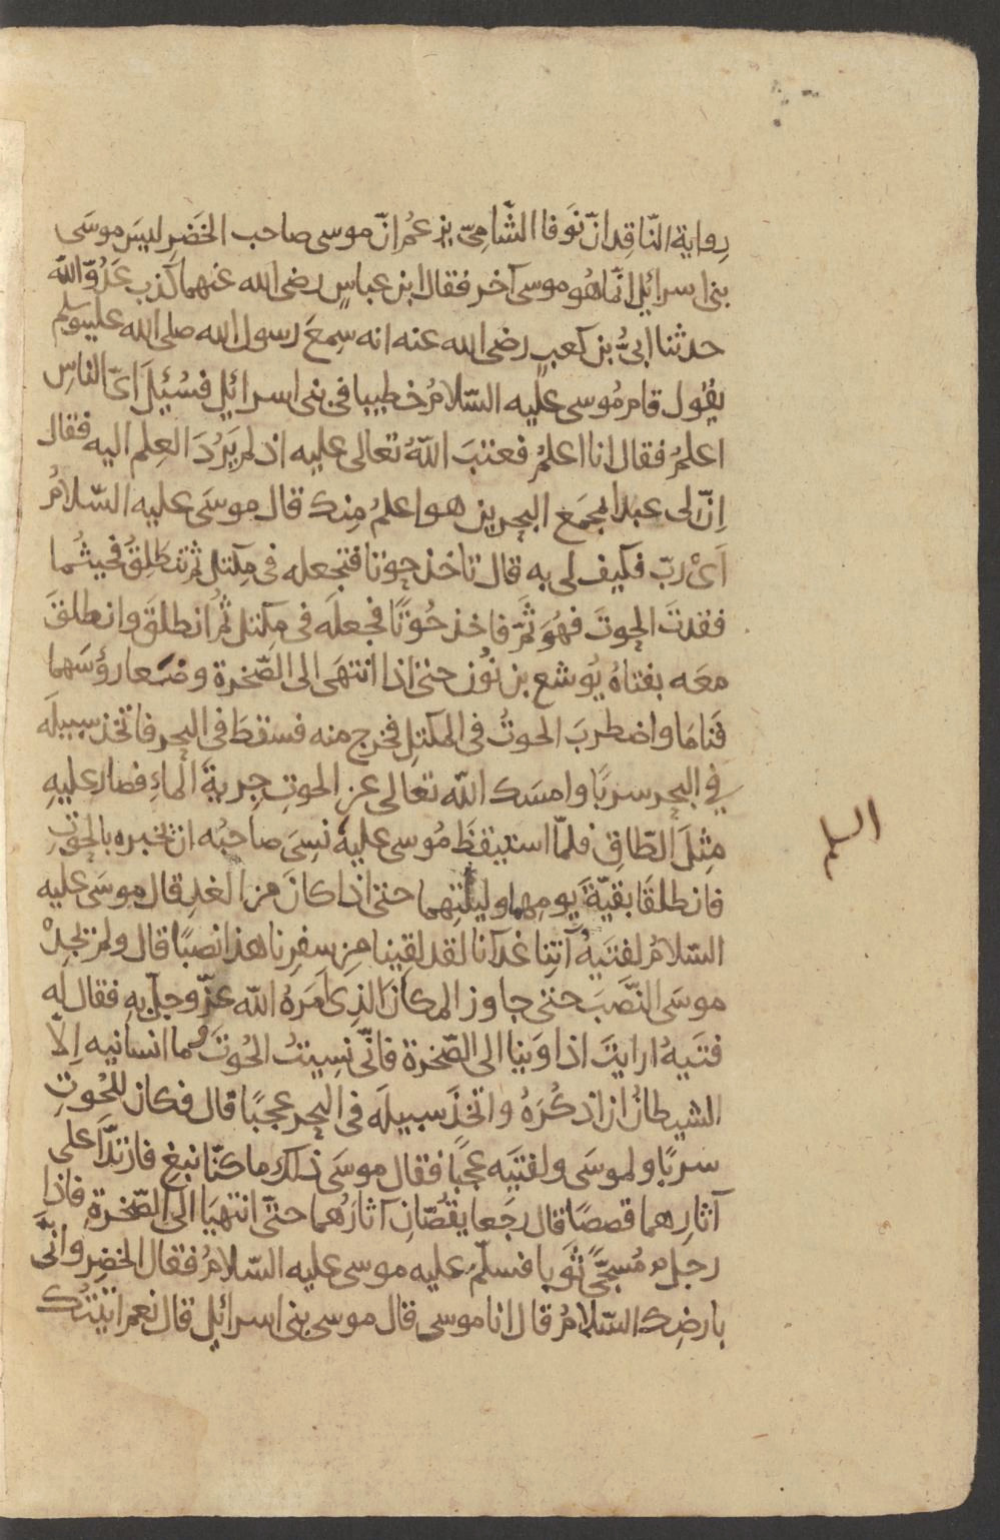 رواية الناقد انّ نَوفا الشّامِىّ يزعمُ انّ موسى صاحب الخَضِر ليسَ موسَى
بنى اسرائيل انّما هُو موسى آخر فقال ابن عباسٍ رضى الله عنهما كذب عَدُوّ الله
حدثنا ابىُّ بن كعبٍ رضى الله عنه انه سِمعَ رسول الله صلى الله عليه وسلم
يقول قام مُوسى عليه السّلامُ خطيبا فى بنى اسرائيل فسُئِلَ اىّ الناسِ
اعلمُ فقال انا اعلمُ فعتبَ اللّهُ تعالى عليه اذ لم يَرُدَ العِلم اليه فقال
اِنّ لى عبدا بمجمَع البحرين هو اعلمُ مِنك قال موسَى عليه السّلامُ
اَىْ ربّ فكيف لى به قال تاخذ حوتا فتجعله فى مِكتل ثم تنطَلِقُ فحيثُما
فقدتَ الحوتَ فهُوَ ثَمَّ فاخذ حُوتًا فجعلَه فى مِكتل ثمُ انطلقَ وانطلقَ
معَه بفتاهُ يُوشع بن نُون حتى اذا انتهَى الى الصّخرة وضَعا رؤسَهما
فَنامَا واضطربَ الحوتُ فى المكتلِ فخرج منه فسقطَ فى البحر فاتخذ سبيلَه
فِي البحر سربًا وامسَك اللّه تعالى عنِ الحوتِ جِريةَ الماءِ فصار عليهِ
مِثلَ الطّاقِ فلمّا استيقظَ مُوسى عليه نسِىَ صاحبُه ان يخبره بالحُوتِ
السلم
فانطلقَا بقيّةَ يَومِهما وليلتِهما حتى اذا كانَ من الغدِ قال موسَى عليه
السّلامُ لفتَيهُ آتِنا غدآنا لقد لقِينا مِن سفرِنا هذا نصبًا قال ولم يجِدْ
موسَى النّصَبَ حتى جاوز المكانَ الذِى اَمَرهُ اللّه عزّ وجلّ بهِ فقال له
فتَيهُ ارايتَ اذ اوَينا الى الصّخرة فانّى نسِيتُ الحُوتَ وما انسانيه اِلّا
الشيطانُ ان اذكُرَهُ واتخذَ سبيلَه فى البحر عجبًا قال فكان للحُوتِ
سربًا ولموسَى ولفتيَه عجبًا فقال موسَى ذلك ما كنّا نبغِ فارتدّا على
آثارِهما قصصًا قال رجَعا يقُصّانِ آثارَهُما حتّى انتهيَا الى الصّخرةِ فاذا
رجلٌ مُسجّىً ثَوبا فسلّم عليه موسى عليه السّلامُ فقال الخضِر وانّى
بارضِك السّلامُ قال انا موسى قال موسى بنى اسرائيل قال نعم اتيتُك